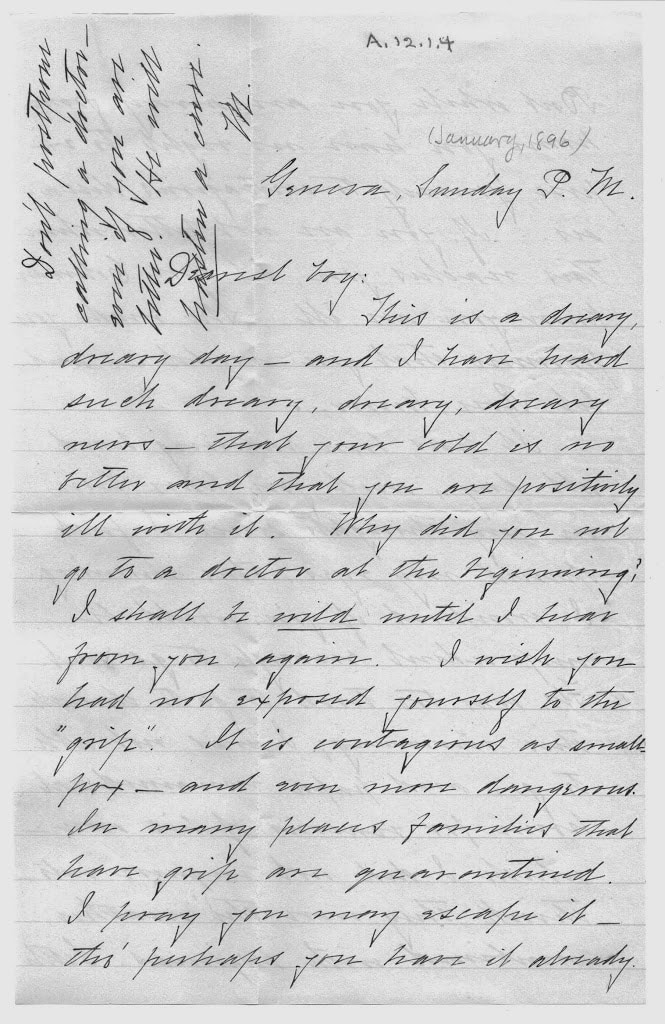 A.12.1.4
(January, 1896)
Geneva, Sunday P. M.
Dearest boy:
This is a dreary,
dreary day – and I have heard
such dreary, dreary, dreary
news – that your cold is no
better and that you are positively
ill with it. Why did you not
go to a doctor at the beginning?
I shall be wild until I hear
from you again. I wish you
had not exposed yourself to the
"grip". It is contagious as small-
pox – and even more dangerous.
In many places families that
have grip are quarantined.
I pray you may escape it –
tho' perhaps you have it already.
Don't postpone
calling a doctor –
even if you are
better. He will
hasten a cure.
M.